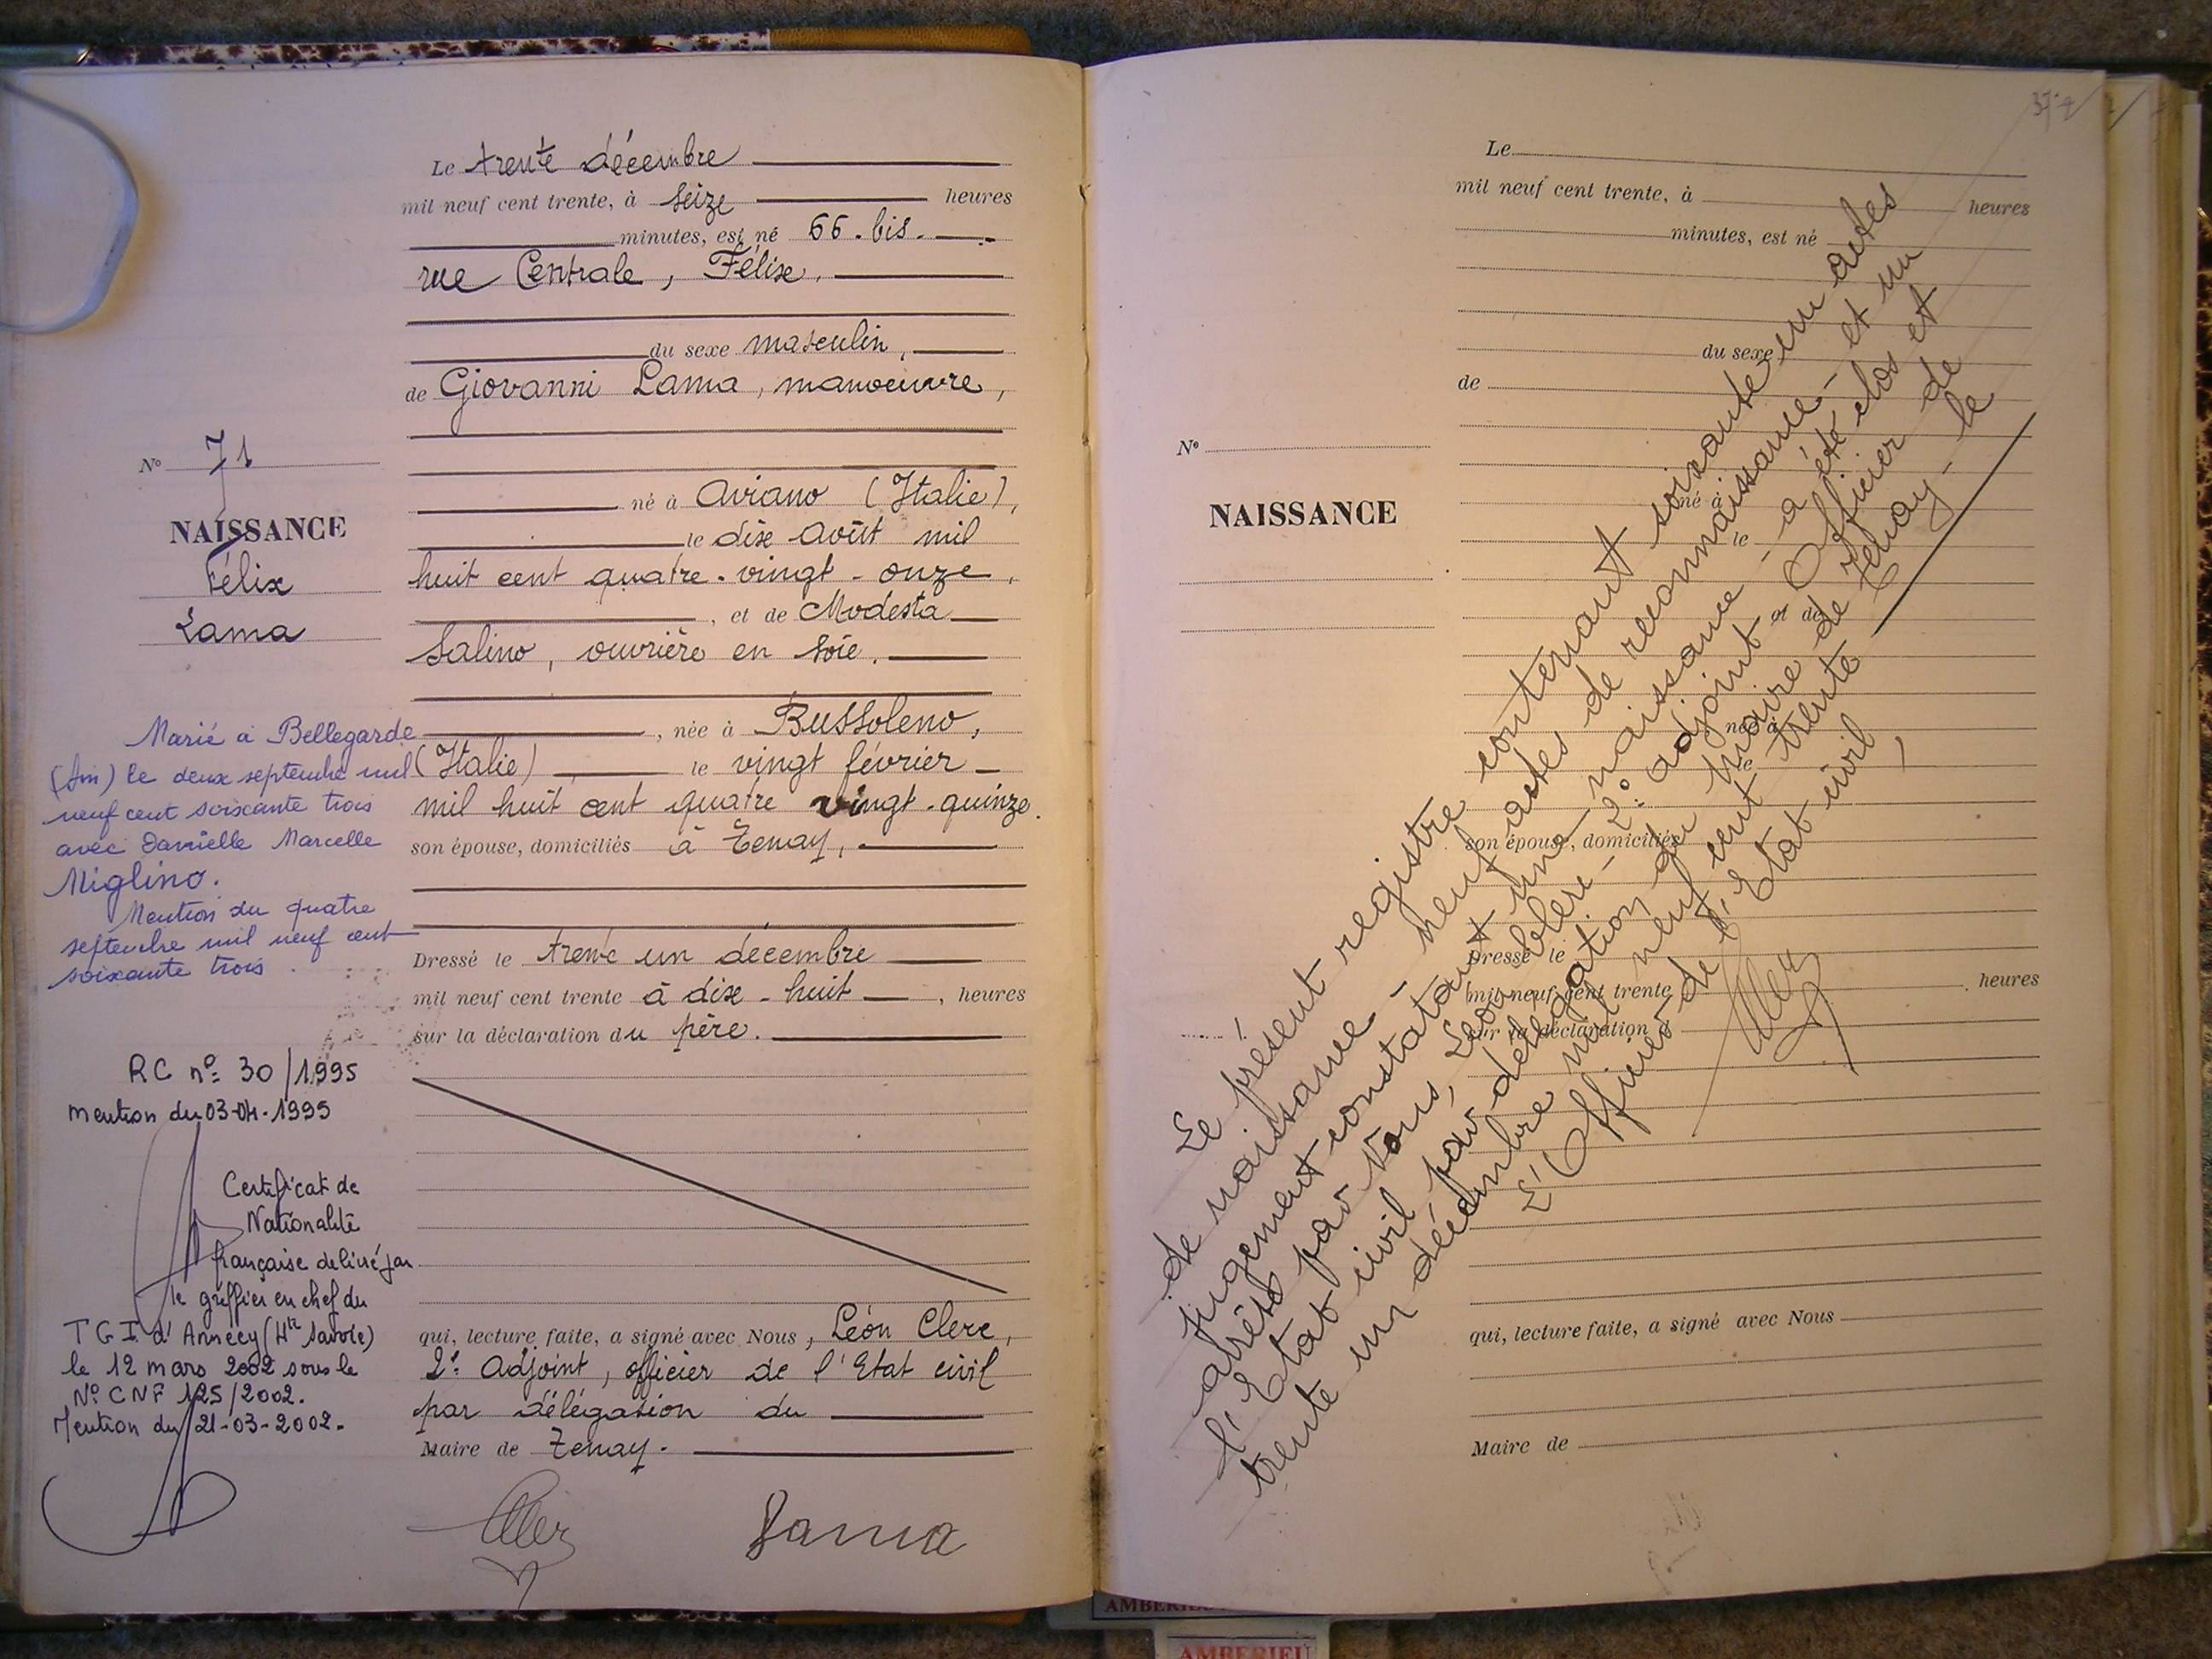 Le trente décembre
mil neuf cent trente, à seize heures
minutes, est né 66.bis.
rue Centrale, Félix.
du sexe masculin,
de Giovanni Lama, manoeuvre,
né à Aviano (Italie),
le dix Août mil
huit cent quatre-vingt-onze,
, et de Modesta
Salino, ouvrière en soie.
, née à Bussoleno,
(Italie) le vingt février
mil huit cent quatre vingt-quinze.
son épouse, domiciliés à Tenay,
Dressé le trente un décembre
mil neuf cent trente à dix-huit, heures
sur la déclaration du père.
qui, lecture faite, a signé avec Nous, Léon Clerc,
2e Adjoint, officier de l'Etat civil
par délégation du
Maire de Tenay.
Lama
No 71
NAISSANCE
Félix
Lama
Marié à Bellegarde
(Ain) le deux septembre mil
neuf cent soixante trois
avec Danielle Marcelle
Miglino.
Mention du quatre
septembre mil neuf cent
soixante trois.
RC no: 30/1995
mention du 03-04-1995
Certificat de
Nationalité
française délivré par
le greffier en chef du
TGI d'Annecy (Hte Savoie)
le 12 mars 2002 sous le
No CNF 125/2002.
Mention du 21-03-2002.
Le
mil neuf cent trente, à heures
minutes, est né
du sexe
de
No
NAISSANCE
né à
le
et de
née à
le
son épouse, domiciliés
Dressé le
mil neuf cent trente heures
sur la déclaration d
qui, lecture faite, a signé avec Nous
Maire de
Le présent registre contenant soixante un actes
de naissance - neuf actes de reconnaissance - et un
jugement constatant une naissance - a été clos et
arrêté par Nous, Léon Clerc - 2e adjoint Officier de
l'Etat civil par délégation du Maire de Tenay - le
trente un décembre mil neuf cent trente
L'Officier de l'Etat civil,
AMBERIEU